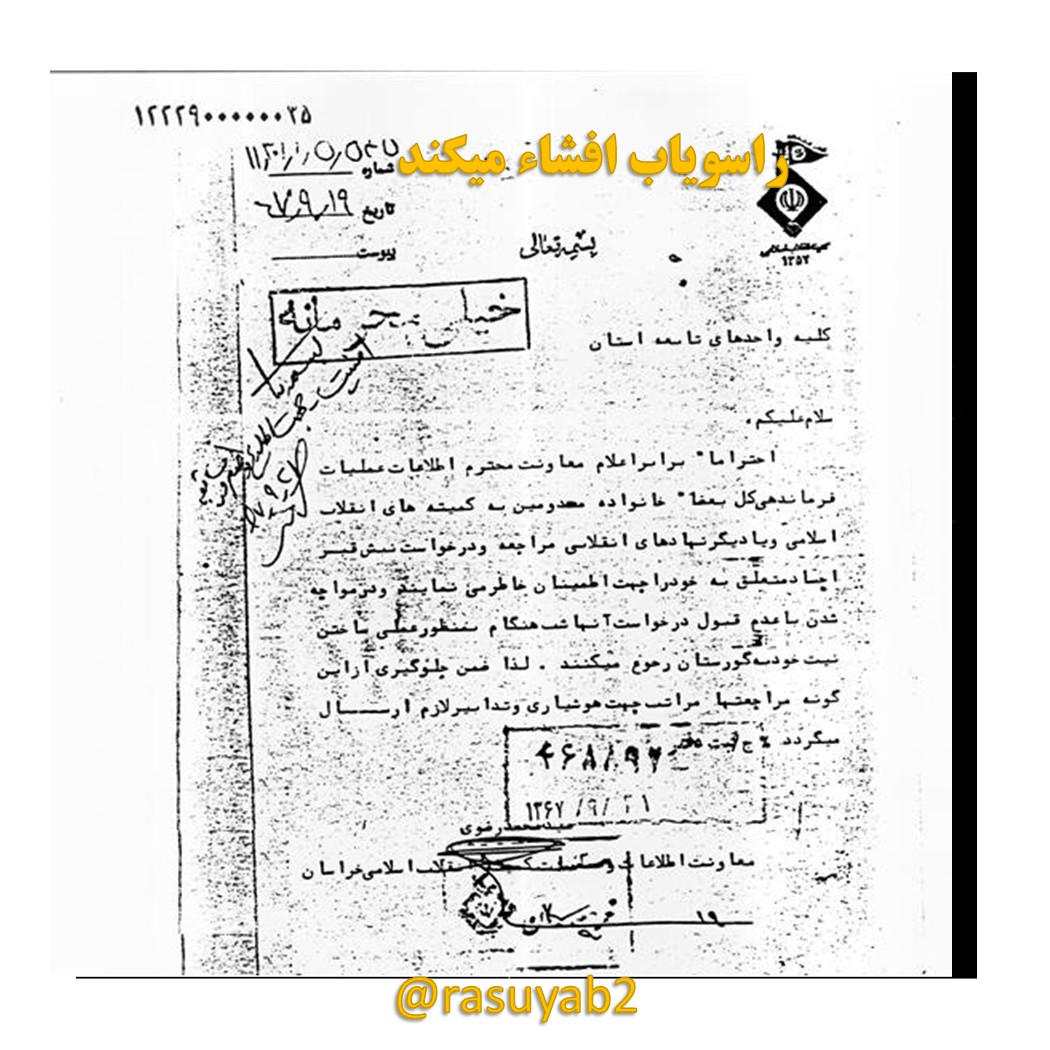 ۱۲۲۲۹۰۰۰۰۰۰۲۵
راسویاب افشاء میکند
شماره
تاریخ ۶۷/۹/۱۹
پیوست
بسمه‌تعالی
۱۳۵۷
خیلی محرمانه
کلیه واحدهای تابعه استان
سلام علیکم،
احتراما" برابر اعلام معاونت محترم اطلاعات عملیات
فرماندهی کل بعضا" خانواده معدومین به کمیته های انقلاب
اسلامی و یا دیگر نهادهای انقلابی مراجعه و درخواست نبش قبر
اجساد متعلق به خود را جهت اطمینان خاطر می نمایند و در مواجه
شدن با عدم قبول درخواست آنها شب هنگام بمنظور عملی ساختن
نیت خود به گورستان رجوع میکنند . لذا ضمن جلوگیری از این
گونه مراجعتها مراتب جهت هوشیاری و تدابیر لازم ارسال
میگردد ج
ثبت دفتر
۱۳۶۷/۹/۲۱
سیدمحمد رضوی
معاونت اطلاعات و عملیات کمیته انقلاب اسلامی خراسان
۱۹
@rasuyab2